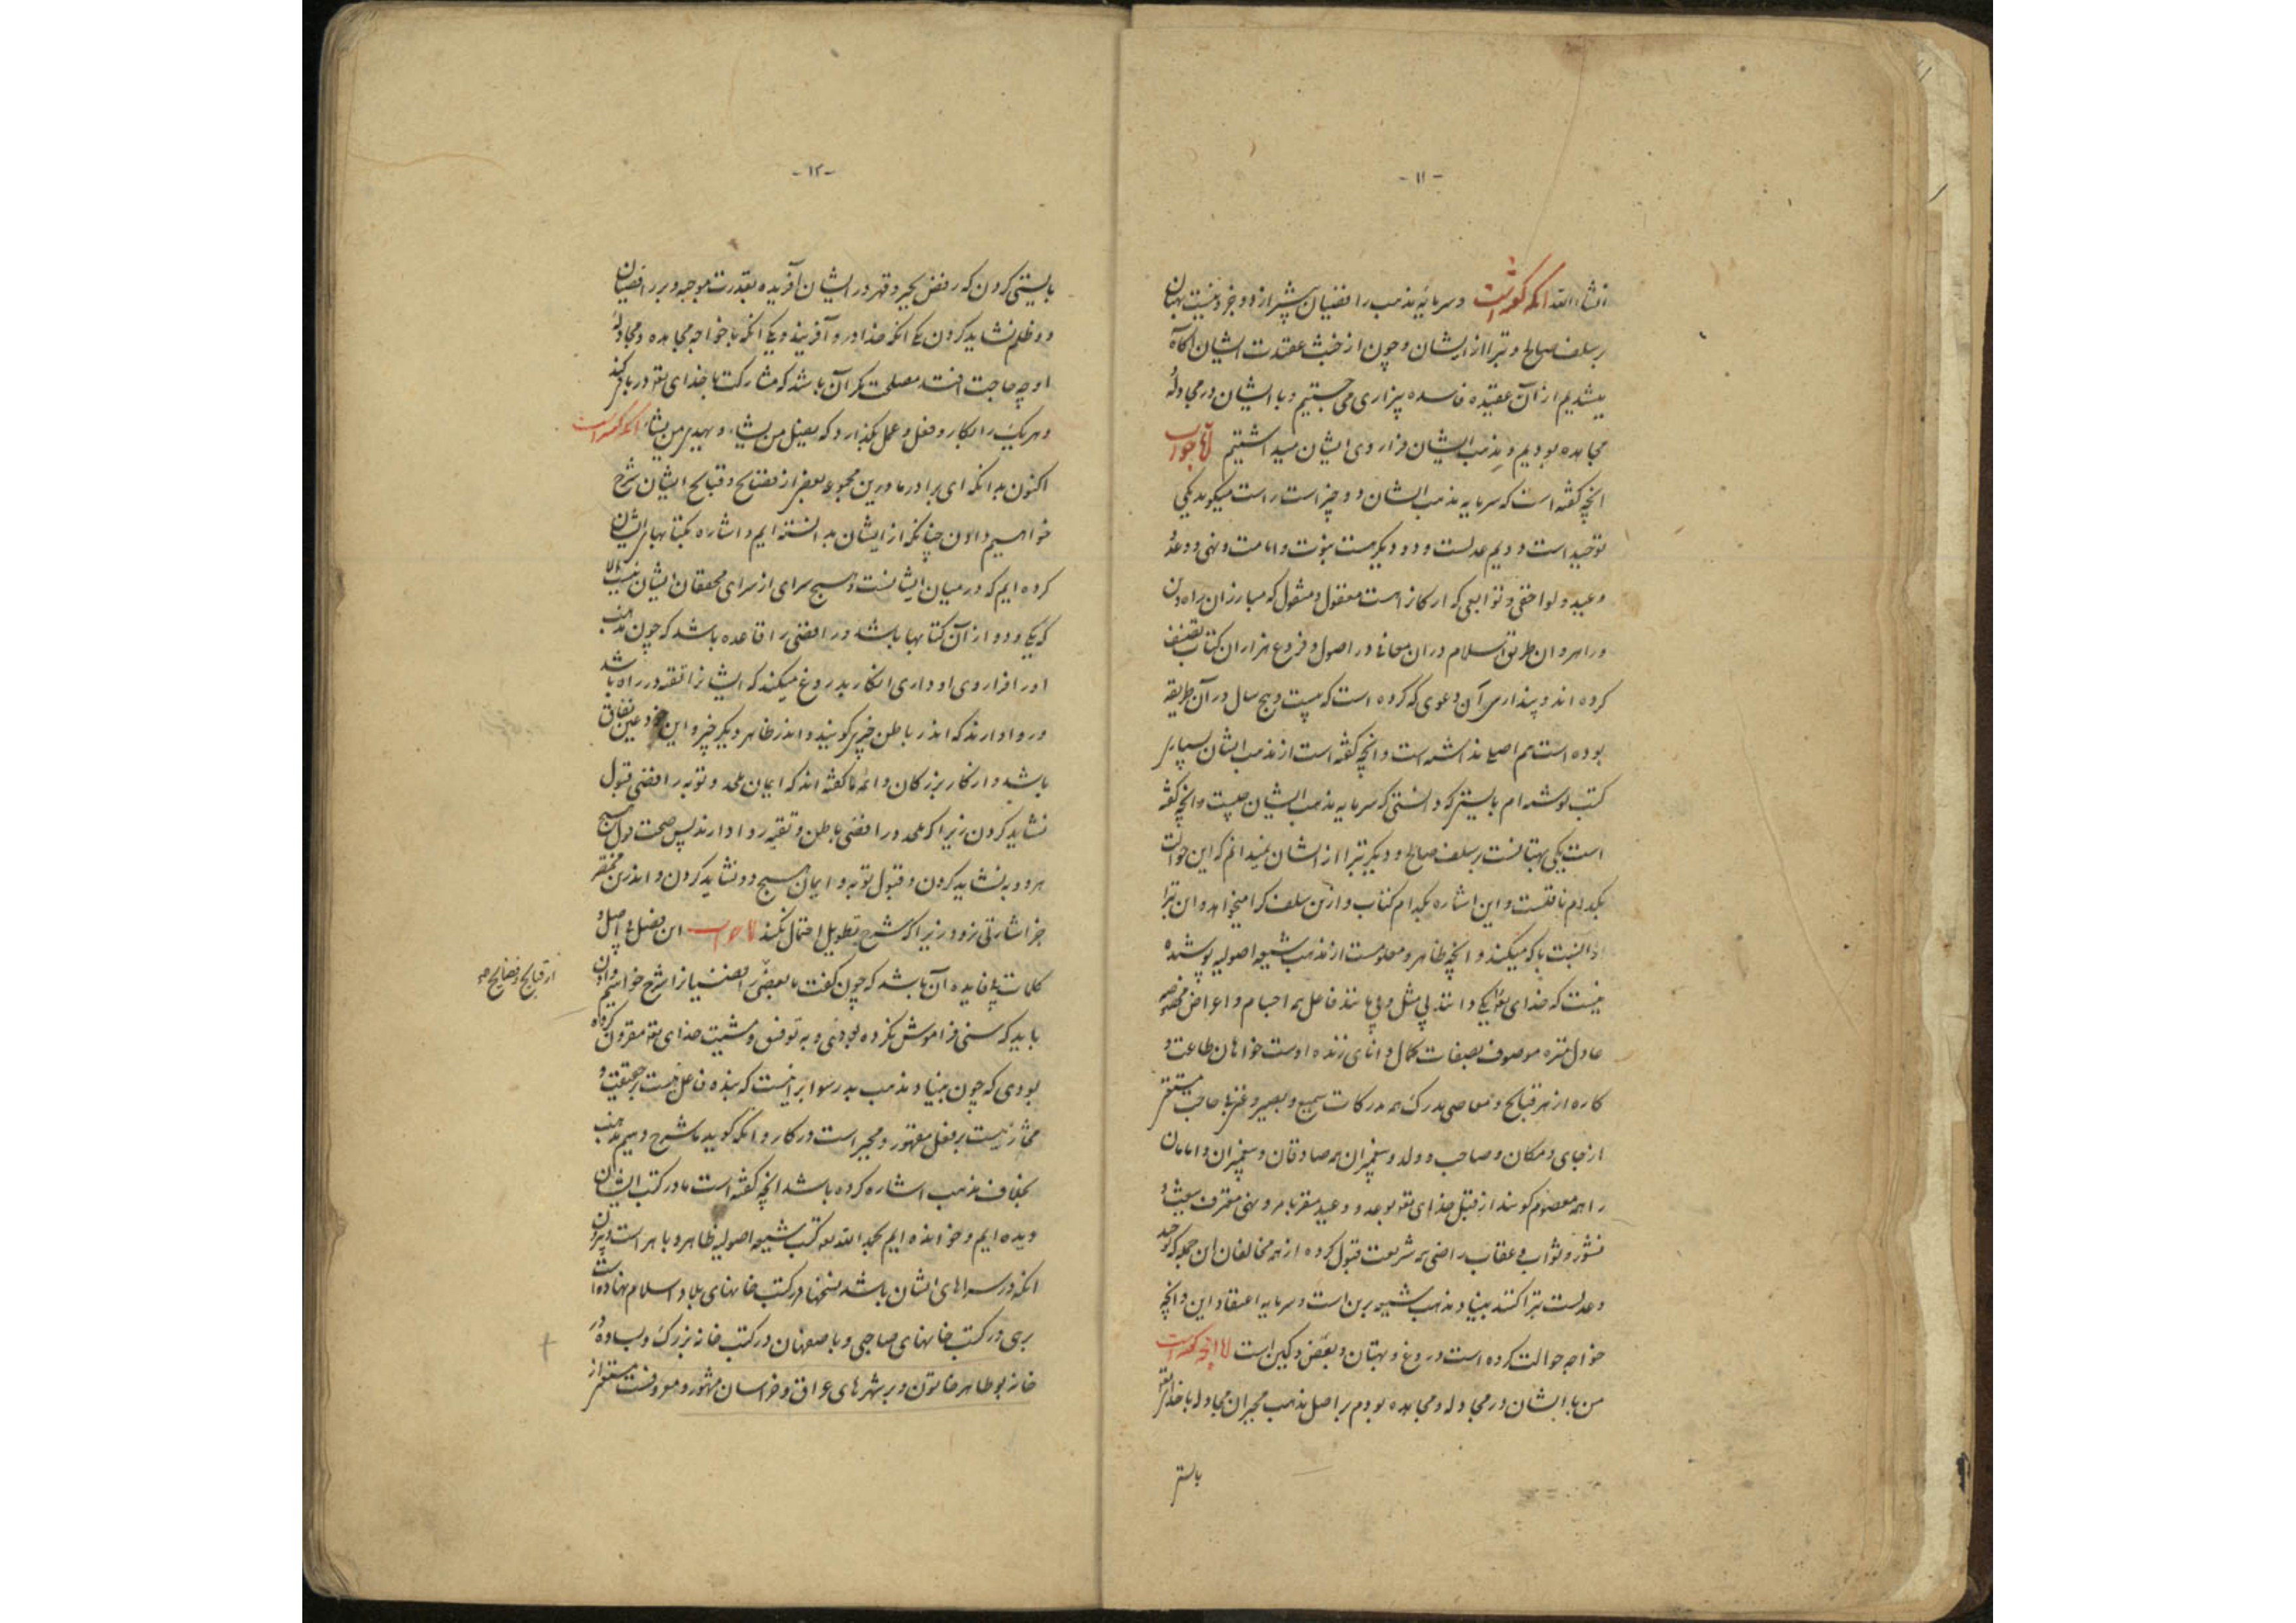 - ۱۱ -
انشاء الله آنکه گفته است و سرمایهٔ مذهب رافضیان بیشتر از دو چیز نیست بهتان
بر سلف صالح و تبرا از ایشان و چون از خبث عقیدت ایشان آگاه
میشدیم از آن عقیده فاسده بیزاری می جستیم و با ایشان در مجادله
مجاهده بودیم و مذهب ایشان فرا روی ایشان میداشتیم اما جواب
آنچه گفته است که سرمایه مذهب ایشان دو چیز است راست میگوید یکی
توحید است و دویم عدلست و دو دیگر هست نبوت و امامت و نهی و وعد
وعید و لواحقی و توابعی که ارکان است معقول و منقول که مبارزان راه دین
و راهروان طریق اسلام در ان معانی در اصول و فروع هزاران کتاب تصنیف
کرده اند و پنداری آن دعوی که کرده است که بیست و پنج سال در آن طریقه
بوده است هم اصلی نداشته است و آنچه گفته است از مذهب ایشان بسیاری
کتب نوشته ام بایستی که دانستی که سرمایه مذهب ایشان چیست و آنچه گفته
است یکی بهتانست بر سلف صالح و دیگر تبرا از ایشان نمیدانم که این حوالت
بکدام ناقلست و این اشاره بکدام کتاب و ازین سلف کرا میخواهد و ان تبرا
را نسبت با که میکند و آنچه ظاهر و معلومست از مذهب شیعه اصولیه پوشیده
نیست که خدای تعالی یکی دانند بی مثل و بی مانند فاعل همه اجسام و اعراض مخصوصه
عادل منزه موصوف بصفات کمال دانای زنده اوست خواهان طاعت و
کاره از هر قبایح و معاصی مدرک همه مدرکات سمیع و بصیر و غنی با حاجت مستغنی
از جای و مکان و صاحب و ولد و پیغمبران همه صادقان و پیغمبران و امامان
را همه معصوم گویند از قبل خدای تعو بوعد و وعید مقر بامر و نهی معترف ببعث و
نشور و ثواب و عقاب راضی همه شریعت قبول کرده از همه مخالفان این جمله که توحید
و عدلست تبرا کنند بنیاد مذهب شیعه برین است و سرمایه اعتقاد این و آنچه
خواجه حوالت کرده است دروغ و بهتان و بغض و کین است اما آنچه گفته است
من با ایشان در مجادله و مجاهده بودم بر اصل مذهب مجبران مجادله با خدای تعو
بایستی
- ۱۲ -
بایستی کردن که رفض بجبر و قهر در ایشان آفریده بقدرت موجبه و بر رافضیان
دو ظلم نشاید کردن یکی آنکه خدا درو آفریند و یکی آنکه با خواجه مجاهده و مجادلهٔ
او چه حاجت افتد مصلحت مگر آن باشد که مشارکت با خدای تعو در باقی کند
و هر یک را بکار و فعل و عمل بگذارد که یضل من یشاء و یهدی من یشاء آنکه گفته است
اکنون بدانکه ای برادر ما درین مجموعه بعضی از فضایح و قبایح ایشان شرح
خواهیم دادن چنانکه از ایشان بدانسته ایم و اشاره بکتابهای ایشان
کرده ایم که در میان ایشانست و هیچ سرای از سرای محققان ایشان نیست الا
که یکی و دو از آن کتابها باشد و رافضی را قاعده باشد که چون مذهب
او را فرا روی او داری انکار بدروغ میکند که ایشانرا تقیه در راه باشد
و روا دارند که اندر باطن چیزی گویند و اندر ظاهر دیگر چیز و این خود عین نفاق
باشد و از کار بزرگان و ائمه ما گفته اند که ایمان ملحد و توبه رافضی قبول
نشاید کردن زیرا که ملحد و رافضی باطن و تقیه روا دارند پس صحت قول هیچ
هر دو بنشاید کردن و قبول توبه و ایمان هیچ دو نشاید کردن و اندرین مختصر
جز اشارتی نرود زیرا که شرح تطویل احتمال نکند اما جواب این فصل بی اصل و
کلمات بی فایده آن باشد که چون گفت ما بعضی رافضیانرا شرح خواهیم دادن
از قبایح و فضایح صح
باید که سنی فراموش نکرده بودنی و به توفیق و مشیت خدای تعو مقرون کرده
بودی که چون بنیاد مذهب بدر سوا بر آنست که بنده فاعل نیست بحقیقت و
مختار نیست بر فعل مقهور و مجبر است در کار و آنکه گوید ما شرح دهیم مذهب
بخلاف مذهب اشاره کرده باشد آنچه گفته است ما در کتب ایشان
دیده ایم و خوانده ایم بحمد الله تعه کتب شیعه اصولیه ظاهر و باهر است و بیرون
آنکه در سراهای ایشان باشد نسختها در کتب خانهای بلاد اسلام نهاده است
بری در کتب خانهای صاحبی و باصفهان در کتب خانه بزرگ و بساوه در
خانه بو طاهر خاتون و بر شهرهای عراق و خراسان مشهور و معروفست مستغنی از